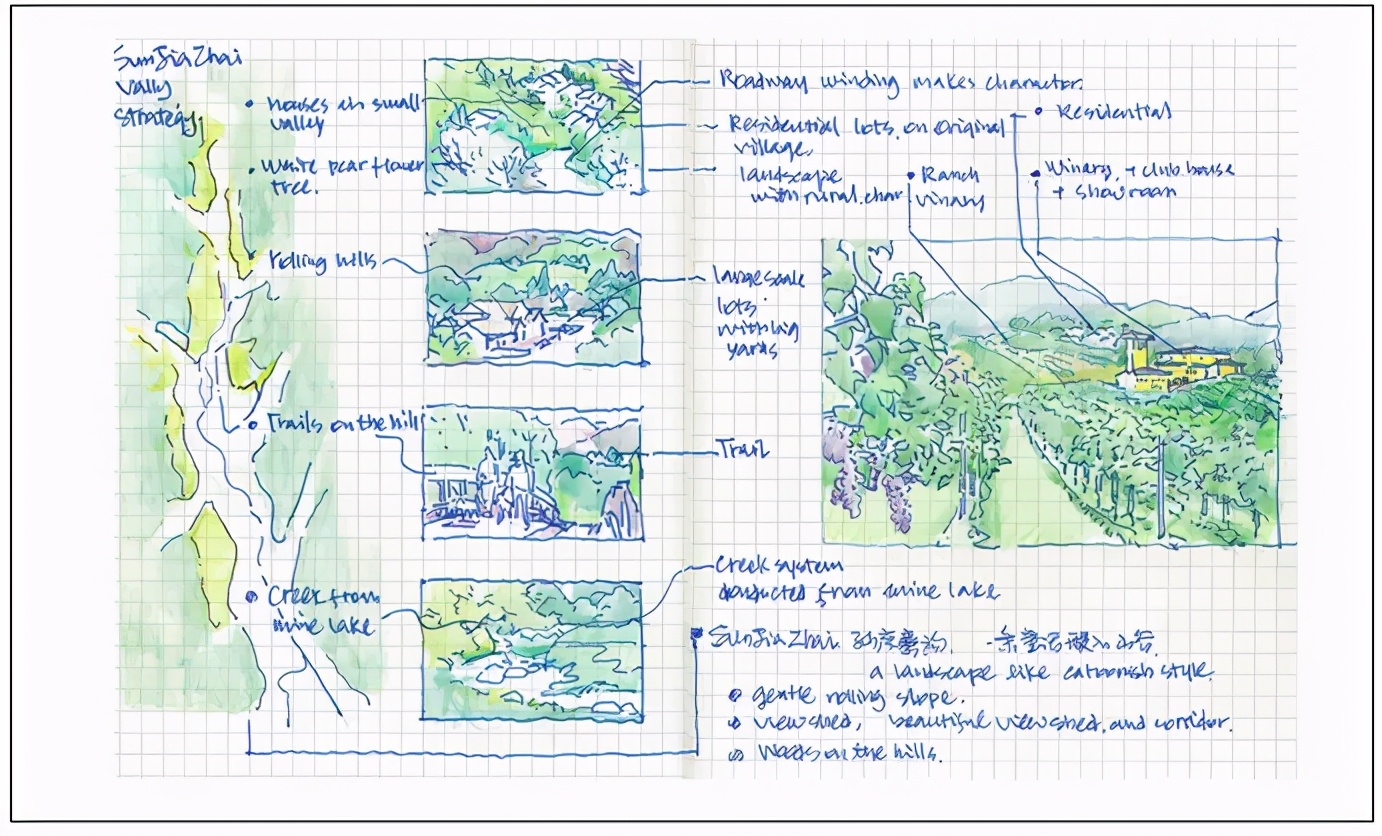 SunJiaZhai
Vally
strategy
houses in small
valley
White pear flower
tree.
rolling hills
Trails on the hill
Creek from
mine lake
Roadway winding makes character.
Residential lots on original
village,
landscape
with rural char
Ranch
vinary
Residential
Winary, + club house
+ showroom
large scale
lots
with big
yards
Trail
Creek system
conducted from mine lake
SunJiaZhai
a landscape like cartoonish style.
gentle rolling slope.
viewshed, beautiful viewshed, and corridor.
Woods on the hills.